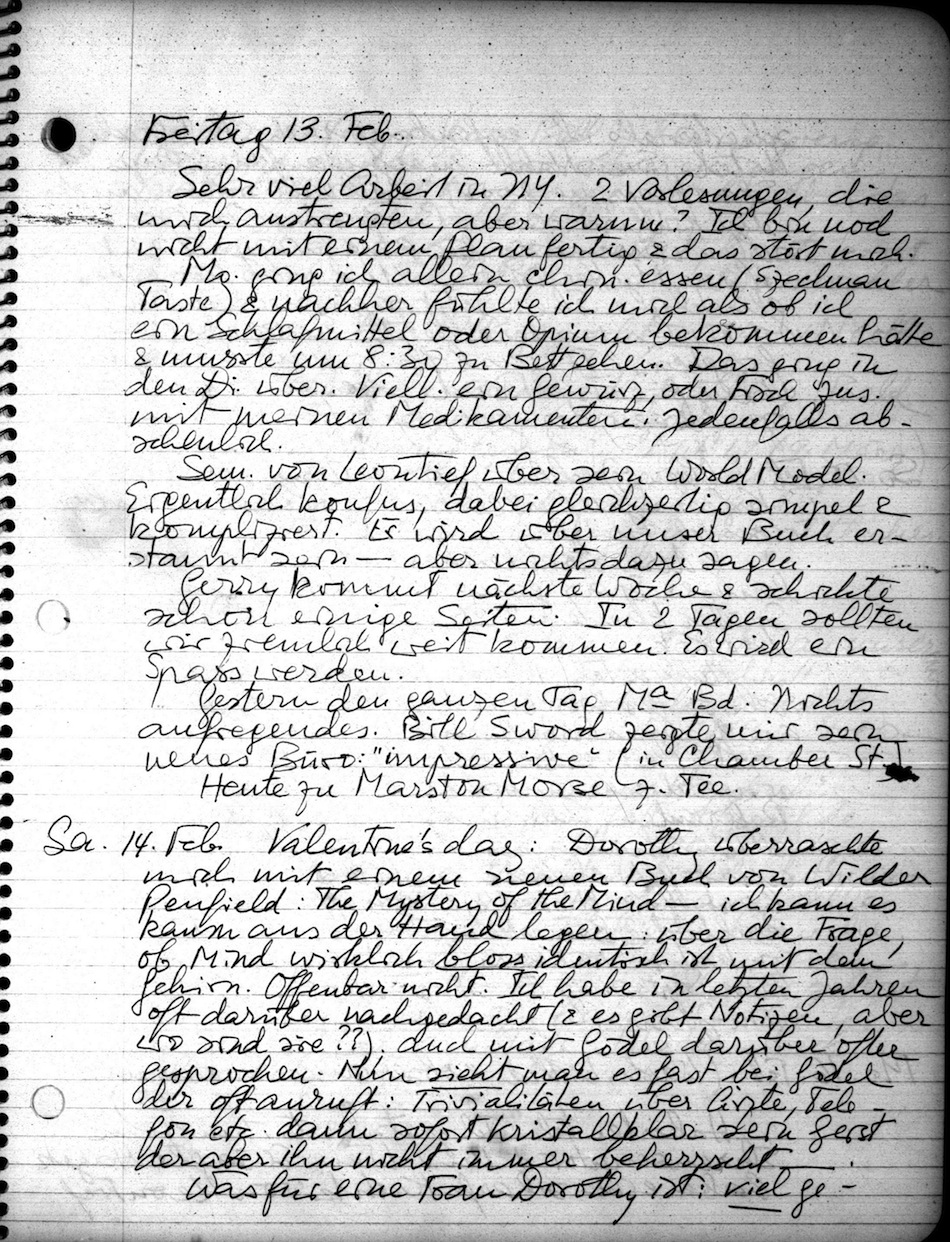 Freitag 13. Feb.
Sehr viel Arbeit in NY. 2 Vorlesungen, die
mich anstrengten, aber warum? Ich bin noch
nicht mit einem Plan fertig & das stört mich.
Mo. ging ich allein chin. essen (Szechuan
Taste) & nachher fühlte ich mich als ob ich
ein Schlafmittel oder Opium bekommen hätte
& musste um 8:30 zu Bett gehen. Das ging in
den Di. über. Viell. ein Gewürz, oder Fisch zus.
mit meinen Medikamenten. Jedenfalls ab-
scheulich.
Sem. von Leontief über sein World Model.
Eigentlich konfus, dabei gleichzeitig simpel &
kompliziert. Er wird über unser Buch er-
staunt sein — aber nichts dazu sagen.
Gerry kommt nächste Woche & schickte
schon einige Seiten. In 2 Tagen sollten
wir ziemlich weit kommen. Es wird ein
Spass werden.
Gestern den ganzen Tag Ma Bd. Nichts
aufregendes. Bill Sword zeigte mir sein
neues Büro: "impressive" (in Chamber St.)
Heute zu Marston Morse z. Tee.
Sa. 14. Feb. Valentine's day: Dorothy überraschte
mich mit einem neuen Buch von Wilder
Penfield: The Mystery of the Mind — ich kann es
kaum aus der Hand legen: über die Frage,
ob Mind wirklich bloss identisch ist mit dem
Gehirn. Offenbar nicht. Ich habe in letzten Jahren
oft darüber nachgedacht (& es gibt Notizen, aber
wo sind sie??), auch mit Gödel darüber öfter
gesprochen. Nun sieht man es fast bei Gödel
der oft anruft: Trivialitäten über Ärzte, Tele-
fon etc. dann sofort kristallklar sein Geist
der aber ihn nicht immer beherrscht —.
Was für eine Frau Dorothy ist: viel ge-